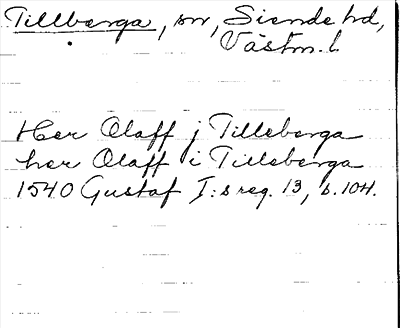 Tillberga, sn, Siende hd,
Västm. l.
Her Olaff j Tilleberga
her Olaff i Tilleberga
1540 Gustaf I:s reg. 13, s. 104.